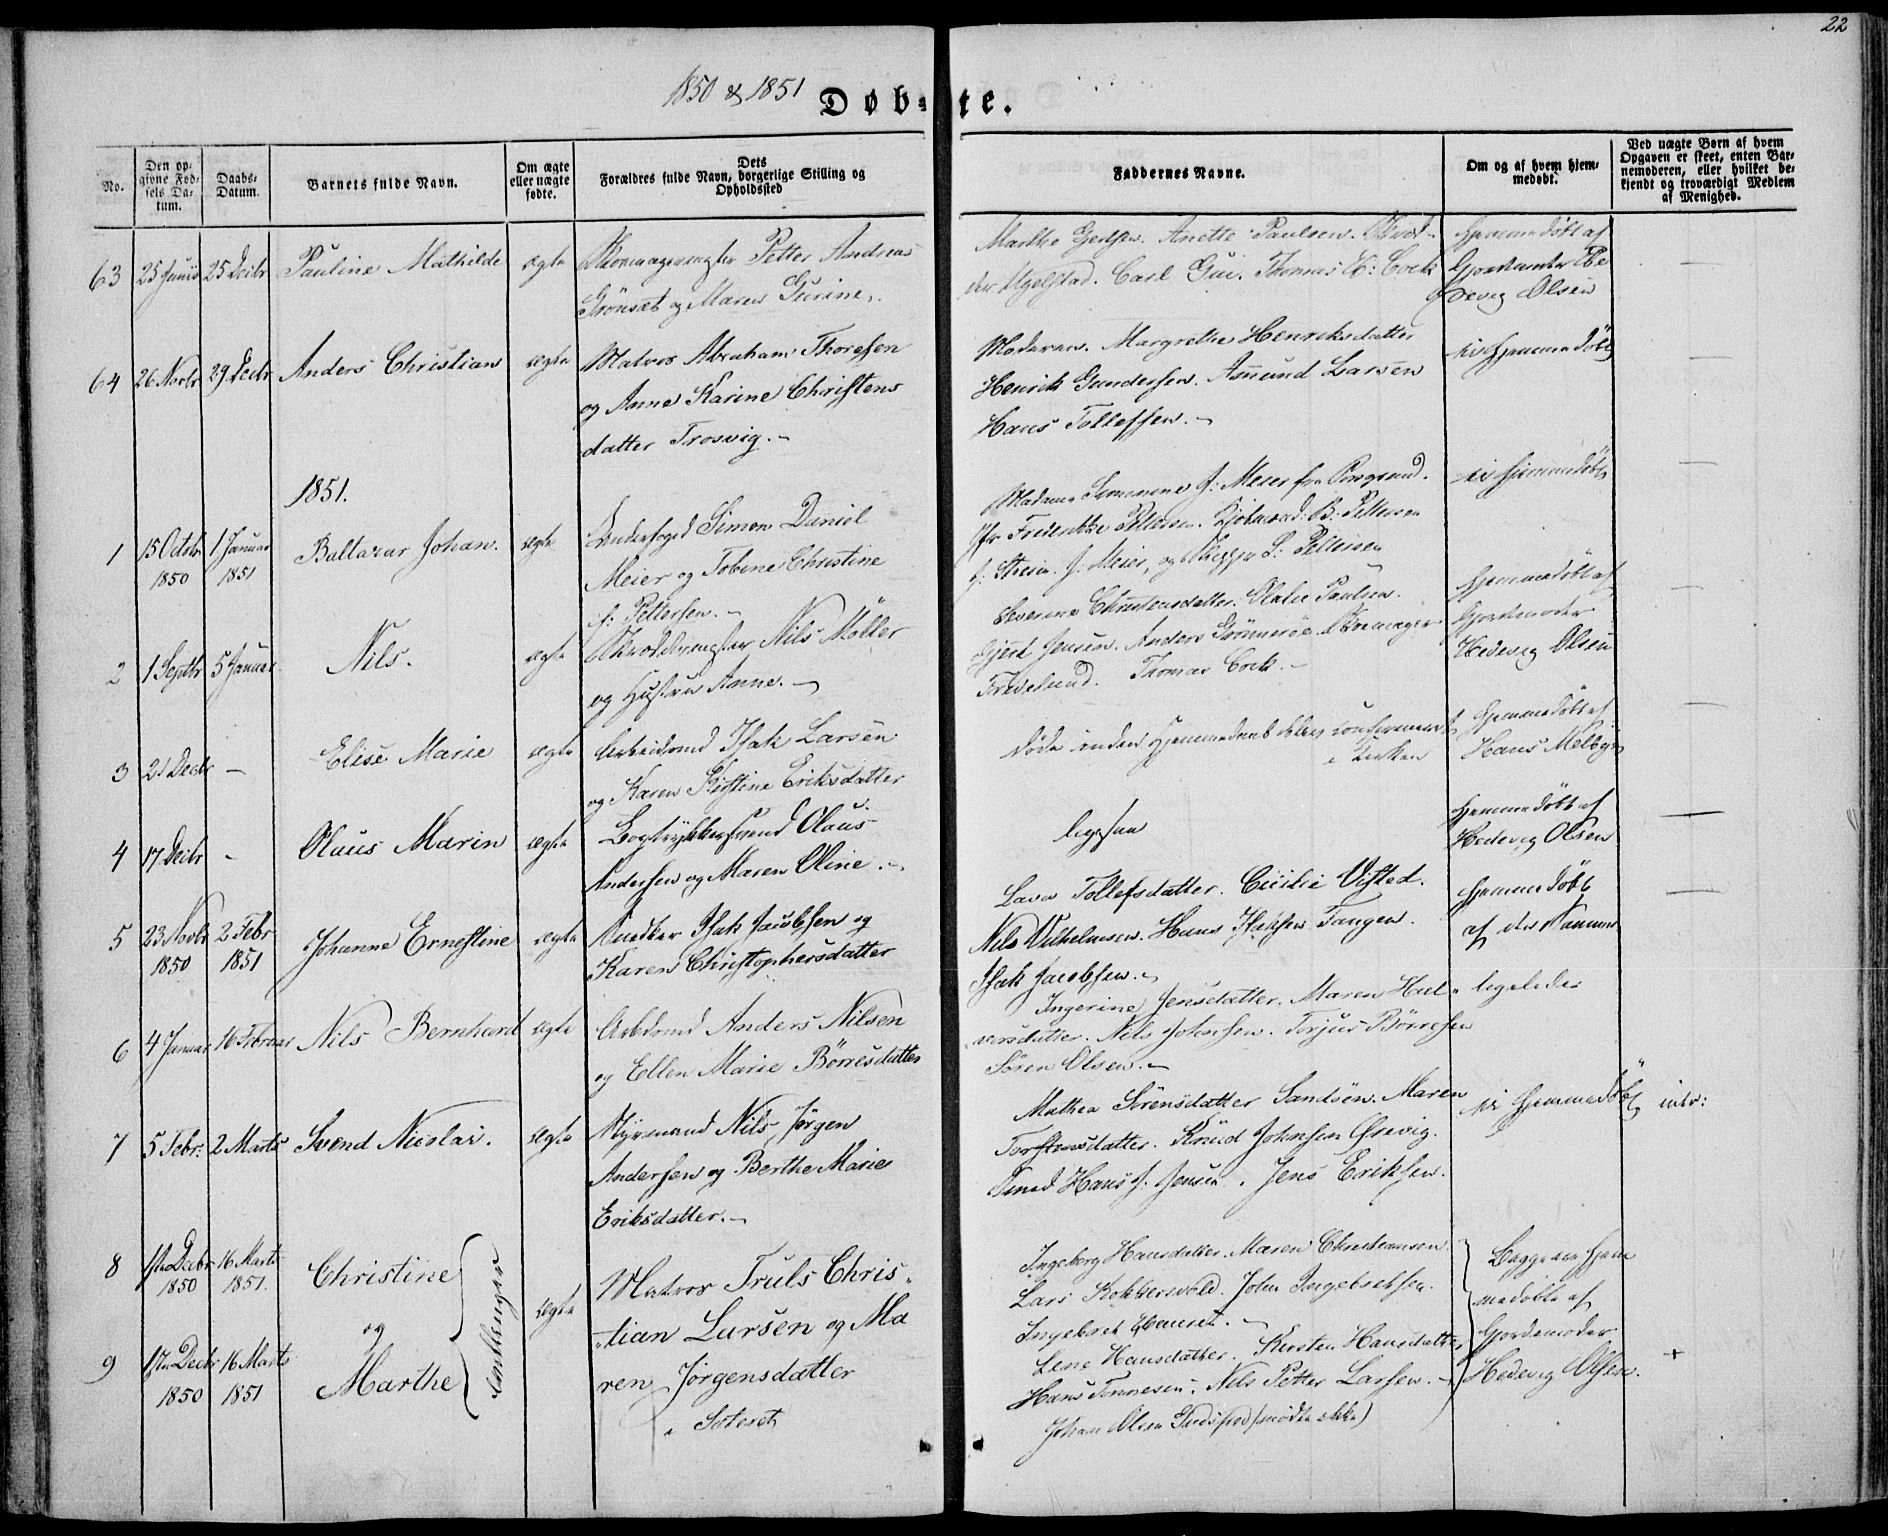 22
1850 & 1851
Døb-te.
No.
Den op-
givne Fød-
sels Da-
tum.
Daabs-
Datum.
Barnets fulde Navn.
Om ægte
eller uægte
fødte.
Dets
Forældres fulde Navn, borgerlige Stilling og
Opholdssted
Faddernes Navne.
Om og af hvem hjem-
medøbt.
Ved uægte Børn af hvem
Opgaven er skeet, enten Bar-
nemoderen, eller hvilket be-
kjendt og troværdigt Medlem
af Menighed.
63 25 Junii 25 Decbr Pauline Mathilde ægte Skomagermester Petter Andreas
Grönsæt og Maren Gurine.
Marthe Gertsen. Anette Paulsen.
Ugelstad. Carl Gui. Thomas H: Cock
Hjemmedöbt af
Gjordemoder He
devig Olsen
64 26 Novbr 29 Decbr Anders Christian ægte Matros Abraham Thoresen
og Anne Karine Christens
datter Trosvig.
Moderen. Margrethe Henriksdatter
Henrik Gundersen. Asmund Larsen
Hans Tollefsen.
ei Hjemmedöbt
1851.
1 15 Octbr 1850 1 Januar 1851 Baltazar Johan. ægte Simon Daniel
Meier og Tobine Christine
f: Pettersen.
Madame f: Meier fra Porsgrund.
Jfr Fredrikke Pettersen. B: Pettersen
J: Meier, og L: Pettersen
ei Hjemmedöbt
2 1 Septbr 5 Januar Nils. ægte Nils Möller
og Hustru Anne.
Severine Christensdatter. Olalie Paulsen.
Gjert Jensen. Anders Grönneröe. Skomager
Fredelund. Thomas Cock.
Hjemmedöbt af
Gjordemoder
Hedevig Olsen
3 21 Decbr – Elise Marie ægte Arbeidsmd Isak Larsen
og Karen Kistine Eriksdatter
döde inden Hjemmedaab blev confirmeret
i Kirken
Hjemmedöbt af
Hans Melbye
4 17 Decbr - Olaus Marin ægte Bogtrykkersvend Olaus
Andersen og Maren Oline.
ligesaa
Hjemmedöbt af
Hedevig Olsen
5 23 Novbr 1850 2 Febr 1851 Johanne Ernestine ægte Snedker Isak Jacobsen og
Karen Christophersdatter
Lava Tollefsdatter. Cicilie Visted.
Nils Vilhelmsen. Hans Isaksen Tangen.
Isak Jacobsen.
Hjemmedöbt
af den Samme
6 4 Januar 16 Februar Nils Bernhard ægte Arbdsmd Anders Nilsen
og Ellen Marie Börresdatter
Ingerine Jensdatter. Maren Hal-
vorsdatter. Nils Johnsen. Torjus Börresen
Sören Olsen.
ligeledes
7 5 Febr. 2 Marts Svend Nicolai. ægte Styrmand Nils Jörgen
Andersen og Berthe Marie
Eriksdatter.
Mathea Sörensdatter Sandöen. Maren
Torstensdatter. Knud Johnsen
Smed Hans J. Jensen. Jens Eriksen.
ei Hjemmedöbt
8 1ste Decbr 1850 16 Marts 1851. Christine
og
9 1ste Decbr 1850 16 Marts 1851 Marthe
Tvillinger
ægte
Matros Truls Chris
tian Larsen og Ma
ren Jörgensdatter
Soteret
Ingeborg Hansdatter. Maren Christiansen.
Lars Kokkersvold. John Ingebretsen.
Ingebret
Lene Hansdatter. Kirsten Hansdatter
Hans Tönnesen. Nils Petter Larsen.
Johan Olsen (mödte ikke)
Begge ere Hjem
medöbte af
Gjordemoder
Hedevig Olsen.
+